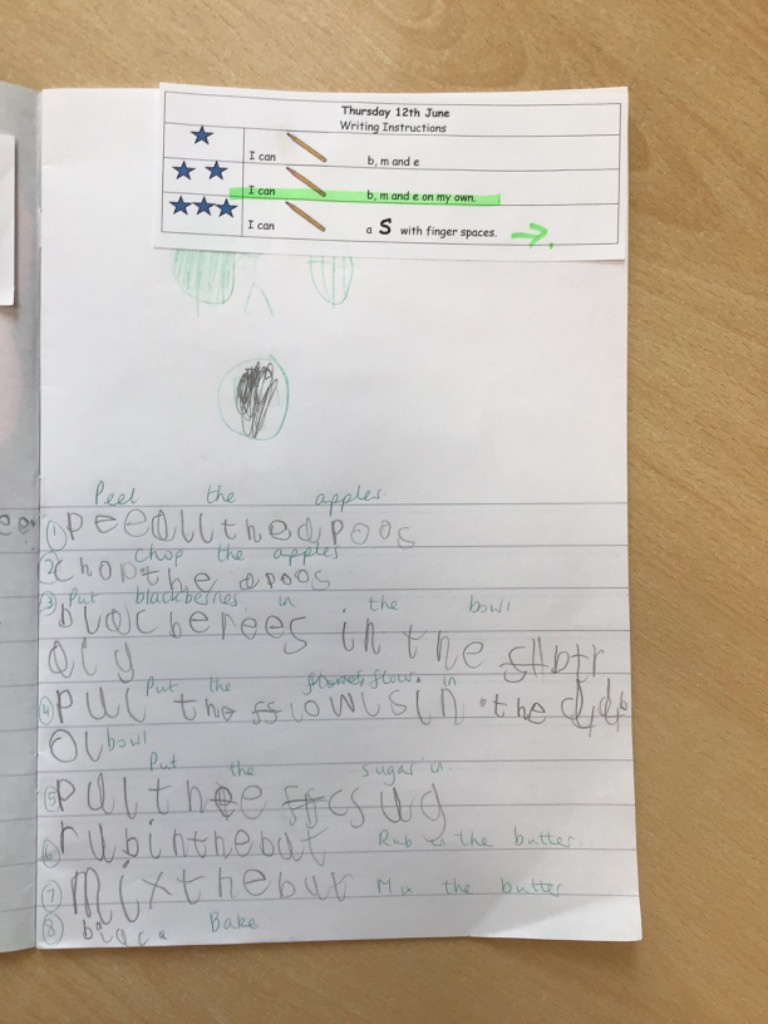 Thursday 12th June
Writing Instructions
I can b, m and e
I can b, m and e on my own.
I can a S with finger spaces.
Peel the apples
① peeallthe apoos
chop the apples
② chop the apoos
③ Put blackberries in the bowl
blacberees in the
Put the flow in
④ put the in the
bowl
Put the sugar in.
⑤ putthee sug
⑥ rubinthebut Rub in the butter.
⑦ mixthebut Mix the butter
⑧ Bake